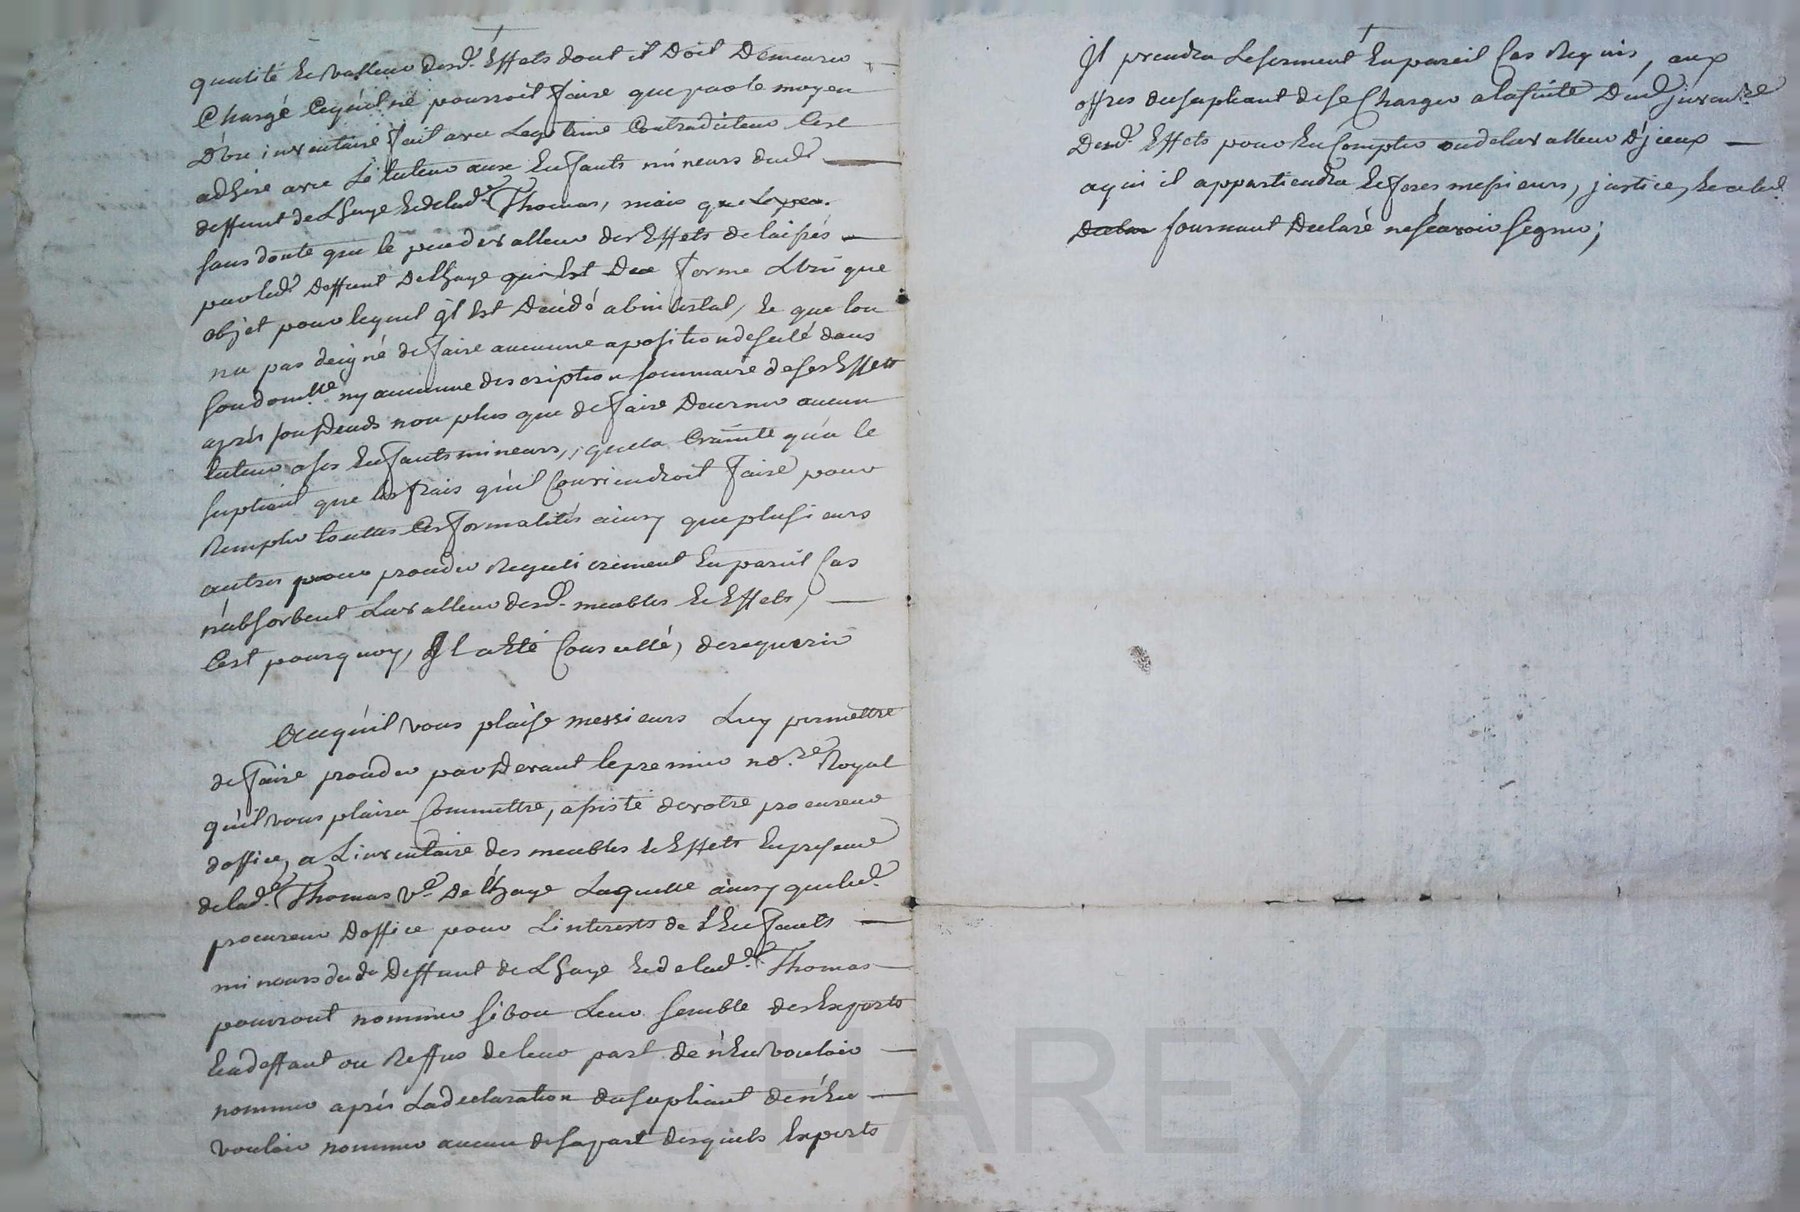 qualité & valleur desd. Effets dont il Doit Demeurer
Chargé Ce qu'il ne pourroit faire que par le moyen
D'un inventaire fait avec Legitime Contraditeur C'est
adire avec Le tuteur aux Enfants mineurs dud.
deffunt de Lhaye & de lad.e Thomas, mais que
sans doute que le peu de valleur des Effets delaissés
par led. Deffunt Delhaye qui Est forme L'unique
objet pour lequel il Est Décédé abintestat, & que lon
na pas deigné de faire aucunne aposition de sçelé dans
son domlle. ny aucunne description sommaire de ses Effets
après son Deceds non plus que de faire Decerner aucun
tuteur a ses Enfants mineurs, que la Crainte qu'a le
supliant que les frais qu'il Conviendroit faire pour
Remplir touttes Ces formalités ainsy que plusieurs
autres pour proceder Regulierement En pareil Cas
n'absorbent La valleur desd. meubles & Effets,
C'est pourquoy, Il a Eté Conseillé, de requerir
Ace qu'il vous plaise messieurs Luy permettre
de faire proceder par Devant le premier no.re Royal
qu'il vous plaira Commettre, assisté de votre procureur
d'office, a L'inventaire des meubles & Effets En presence
de lad.e Thomas v.e De Lhaye Laquelle ainsy que led.
procureur D'office pour L'interests de Enfants
mineurs dud. Deffunt de Lhaye & de lad.e Thomas
pourront nommer si bon Leur semble des Experts
En deffaut ou Reffus de leur part de n'En vouloir
nommer après La declaration du supliant de n'En
vouloir nommer aucun de sa part desquels Experts
Il prendra Le serment En pareil Cas Requis, aux
offres du supliant de se Charger a la suite Dud. inventre
Desd. Effets pour En Compter ou de la valleur D'jceux
a qui il appartiendra & ferés messieurs, justice, & a led.
sournant Declaré ne sçavoir signer;
CHAREYRON